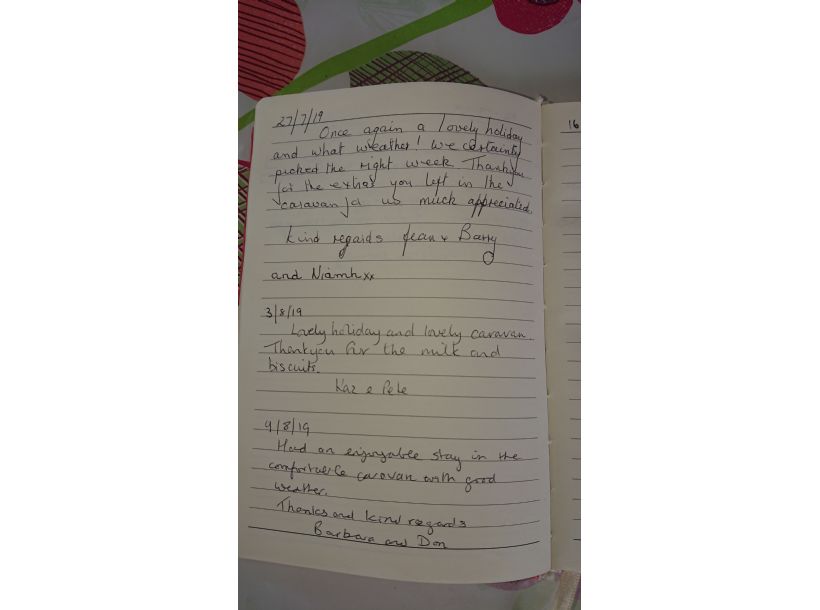 27/7/19
Once again a lovely holiday
and what weather! We certainly
picked the right week. Thankyou
for the extras you left in the
caravan for us much appreciated.
Kind regards Jean & Barry
and Niamh xx
3/8/19
Lovely holiday and lovely caravan.
Thankyou for the milk and
biscuits.
Kaz & Pete
9/8/19
Had an enjoyable stay in the
comfortable caravan with good
weather.
Thanks and kind regards
Barbara and Don
16